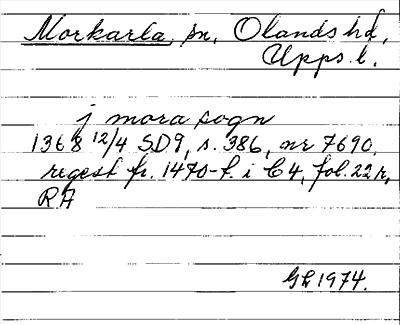 Morkarla, sn, Olands hd,
Upps. l.
j mora sogn
1368 12/4 SD9, s. 386, nr 7690,
regest fr. 1470-t. i C4, fol. 22 r,
RA
GL 1974.